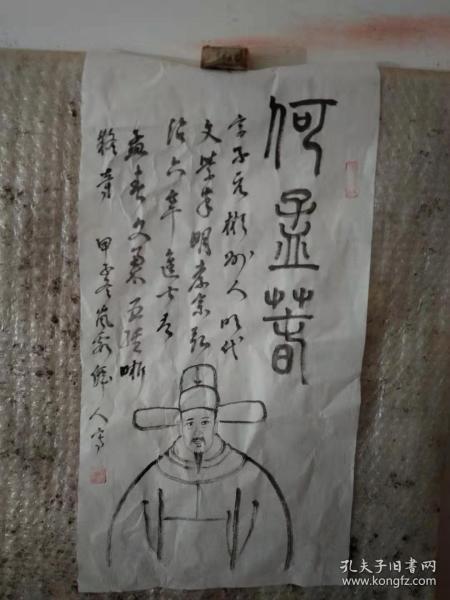 何孟春
字子元郴州人明代
文学家明孝宗弘
治六年進士有
孟春文集五
甲午冬
人写
孔夫子旧书网
www.kongfz.com